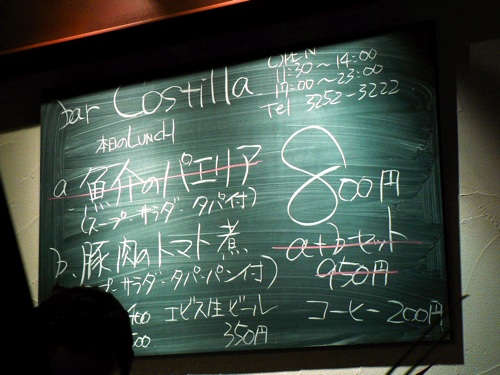 bar Costilla
OPEN
11:30～14:00
17:00～23:00
Tel 3252-3222
本日のLUNCH
a 魚介のパエリア
(スープ・サラダ・タパ付)
800円
b. 豚肉のトマト煮
ープ・サラダ・タパ・パン付)
a+bセット
950円
エビス生ビール
350円
コーヒー200円